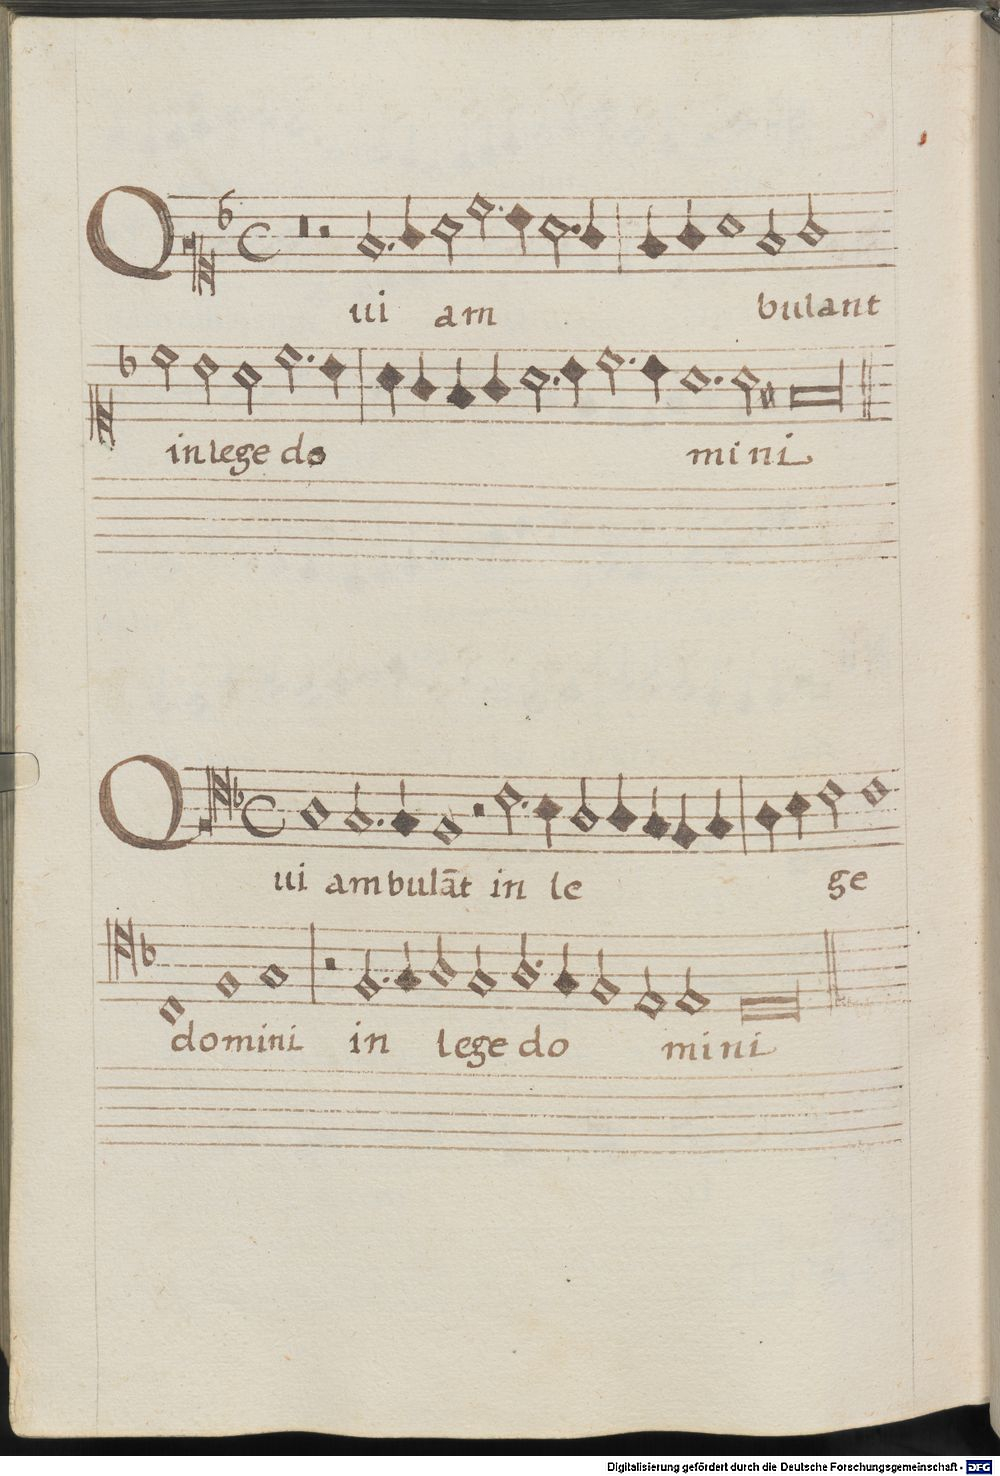 Qui am bulant
in lege do mini
Qui ambulāt in le ge
domini in lege do mini
Digitalisierung gefördert durch die Deutsche Forschungsgemeinschaft - DFG